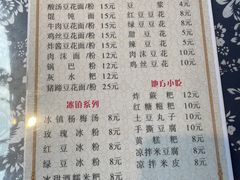 酸汤豆花面/粉 15元
馄饨面 12元
牛肉豆花面/粉 15元
鸡丝豆花面/粉 12元
炸酱豆花面/粉 12元
肉沫面/粉 12元
锅巴粉 12元
灰水粑 12元
猪蹄豆花面/粉 25元
冰镇系列
冰镇杨梅汤 8元
玫瑰冰粉 8元
红豆冰粉 8元
绿豆冰粉 8元
冰甜酒糯米粑
豆浆
红豆豆花
绿豆豆花 8元
甜豆花
辣豆花 5元
肉沫豆花 10元
鸡丝豆花 12元
地方小吃
炸蕨粑 12元
红糖糍粑 10元
土豆丸子 10元
手撕豆腐 10元
黄糕粑 10元
凉拌米豆腐 8元
凉拌米皮 8元